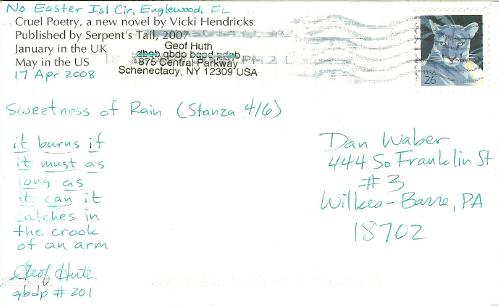 No Easter Isl Cir, Englewood, FL
Cruel Poetry, a new novel by Vicki Hendricks
Published by Serpent's Tail, 2007
January in the UK
May in the US
17 Apr 2008
Geof Huth
875 Central Parkway
Schenectady, NY 12309 USA
USA 26
Sweetness of Rain (Stanza 4/6)
it burns if
it must as
long as
it can it
catches in
the crook
of an arm
Geof Huth
qbdp # 201
Dan Waber
444 So Franklin St
#3
Wilkes-Barre, PA
18702